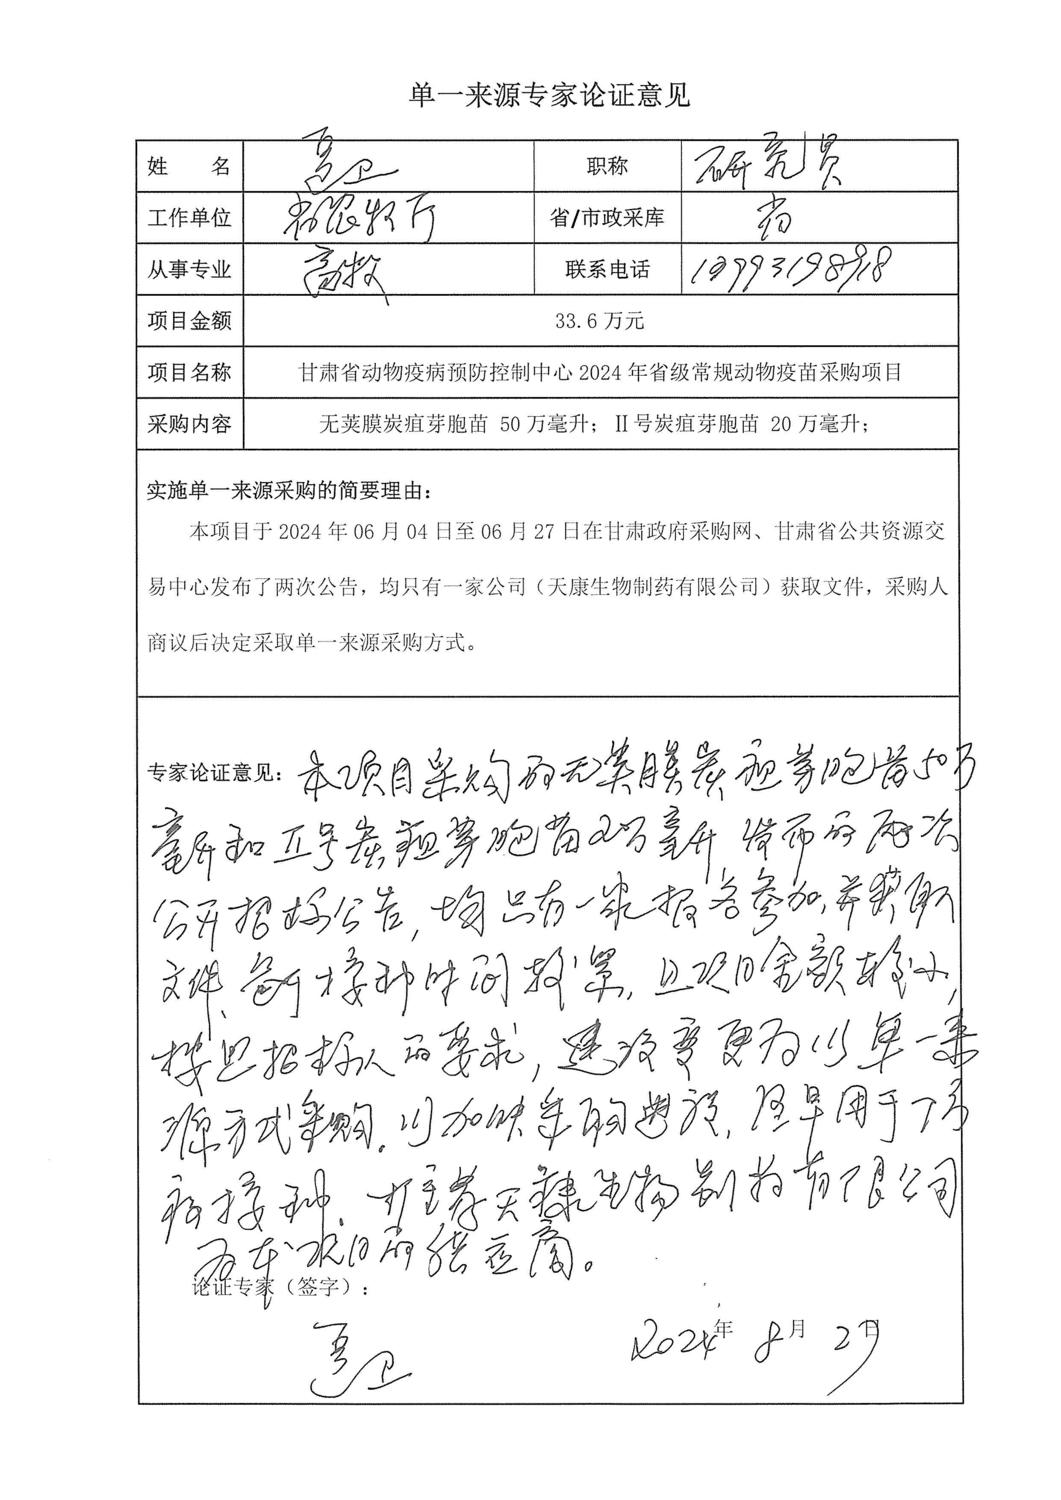 单一来源专家论证意见
姓 名 卫 职称 研究员
工作单位 省农牧厅 省/市政采库 省
从事专业 畜牧 联系电话
项目金额 33.6 万元
项目名称 甘肃省动物疫病预防控制中心 2024 年省级常规动物疫苗采购项目
采购内容 无荚膜炭疽芽胞苗 50 万毫升；Ⅱ号炭疽芽胞苗 20 万毫升；
实施单一来源采购的简要理由：
本项目于 2024 年 06 月 04 日至 06 月 27 日在甘肃政府采购网、甘肃省公共资源交
易中心发布了两次公告，均只有一家公司（天康生物制药有限公司）获取文件，采购人
商议后决定采取单一来源采购方式。
专家论证意见：本项目采购的无荚膜炭疽芽胞苗50万
毫升和Ⅱ号炭疽芽胞苗20万毫升，发布的两次
公开招标公告，均只有一家报名参加，并获取
文件，接种时间较紧，且项目金额较小，
按照招标人的要求，建议变更为以单一来
源方式采购，以加快采购进度，尽早用于
病接种，推荐天康生物制药有限公司
为本项目的供应商。
论证专家（签字）：
卫
2024年 8月 2日